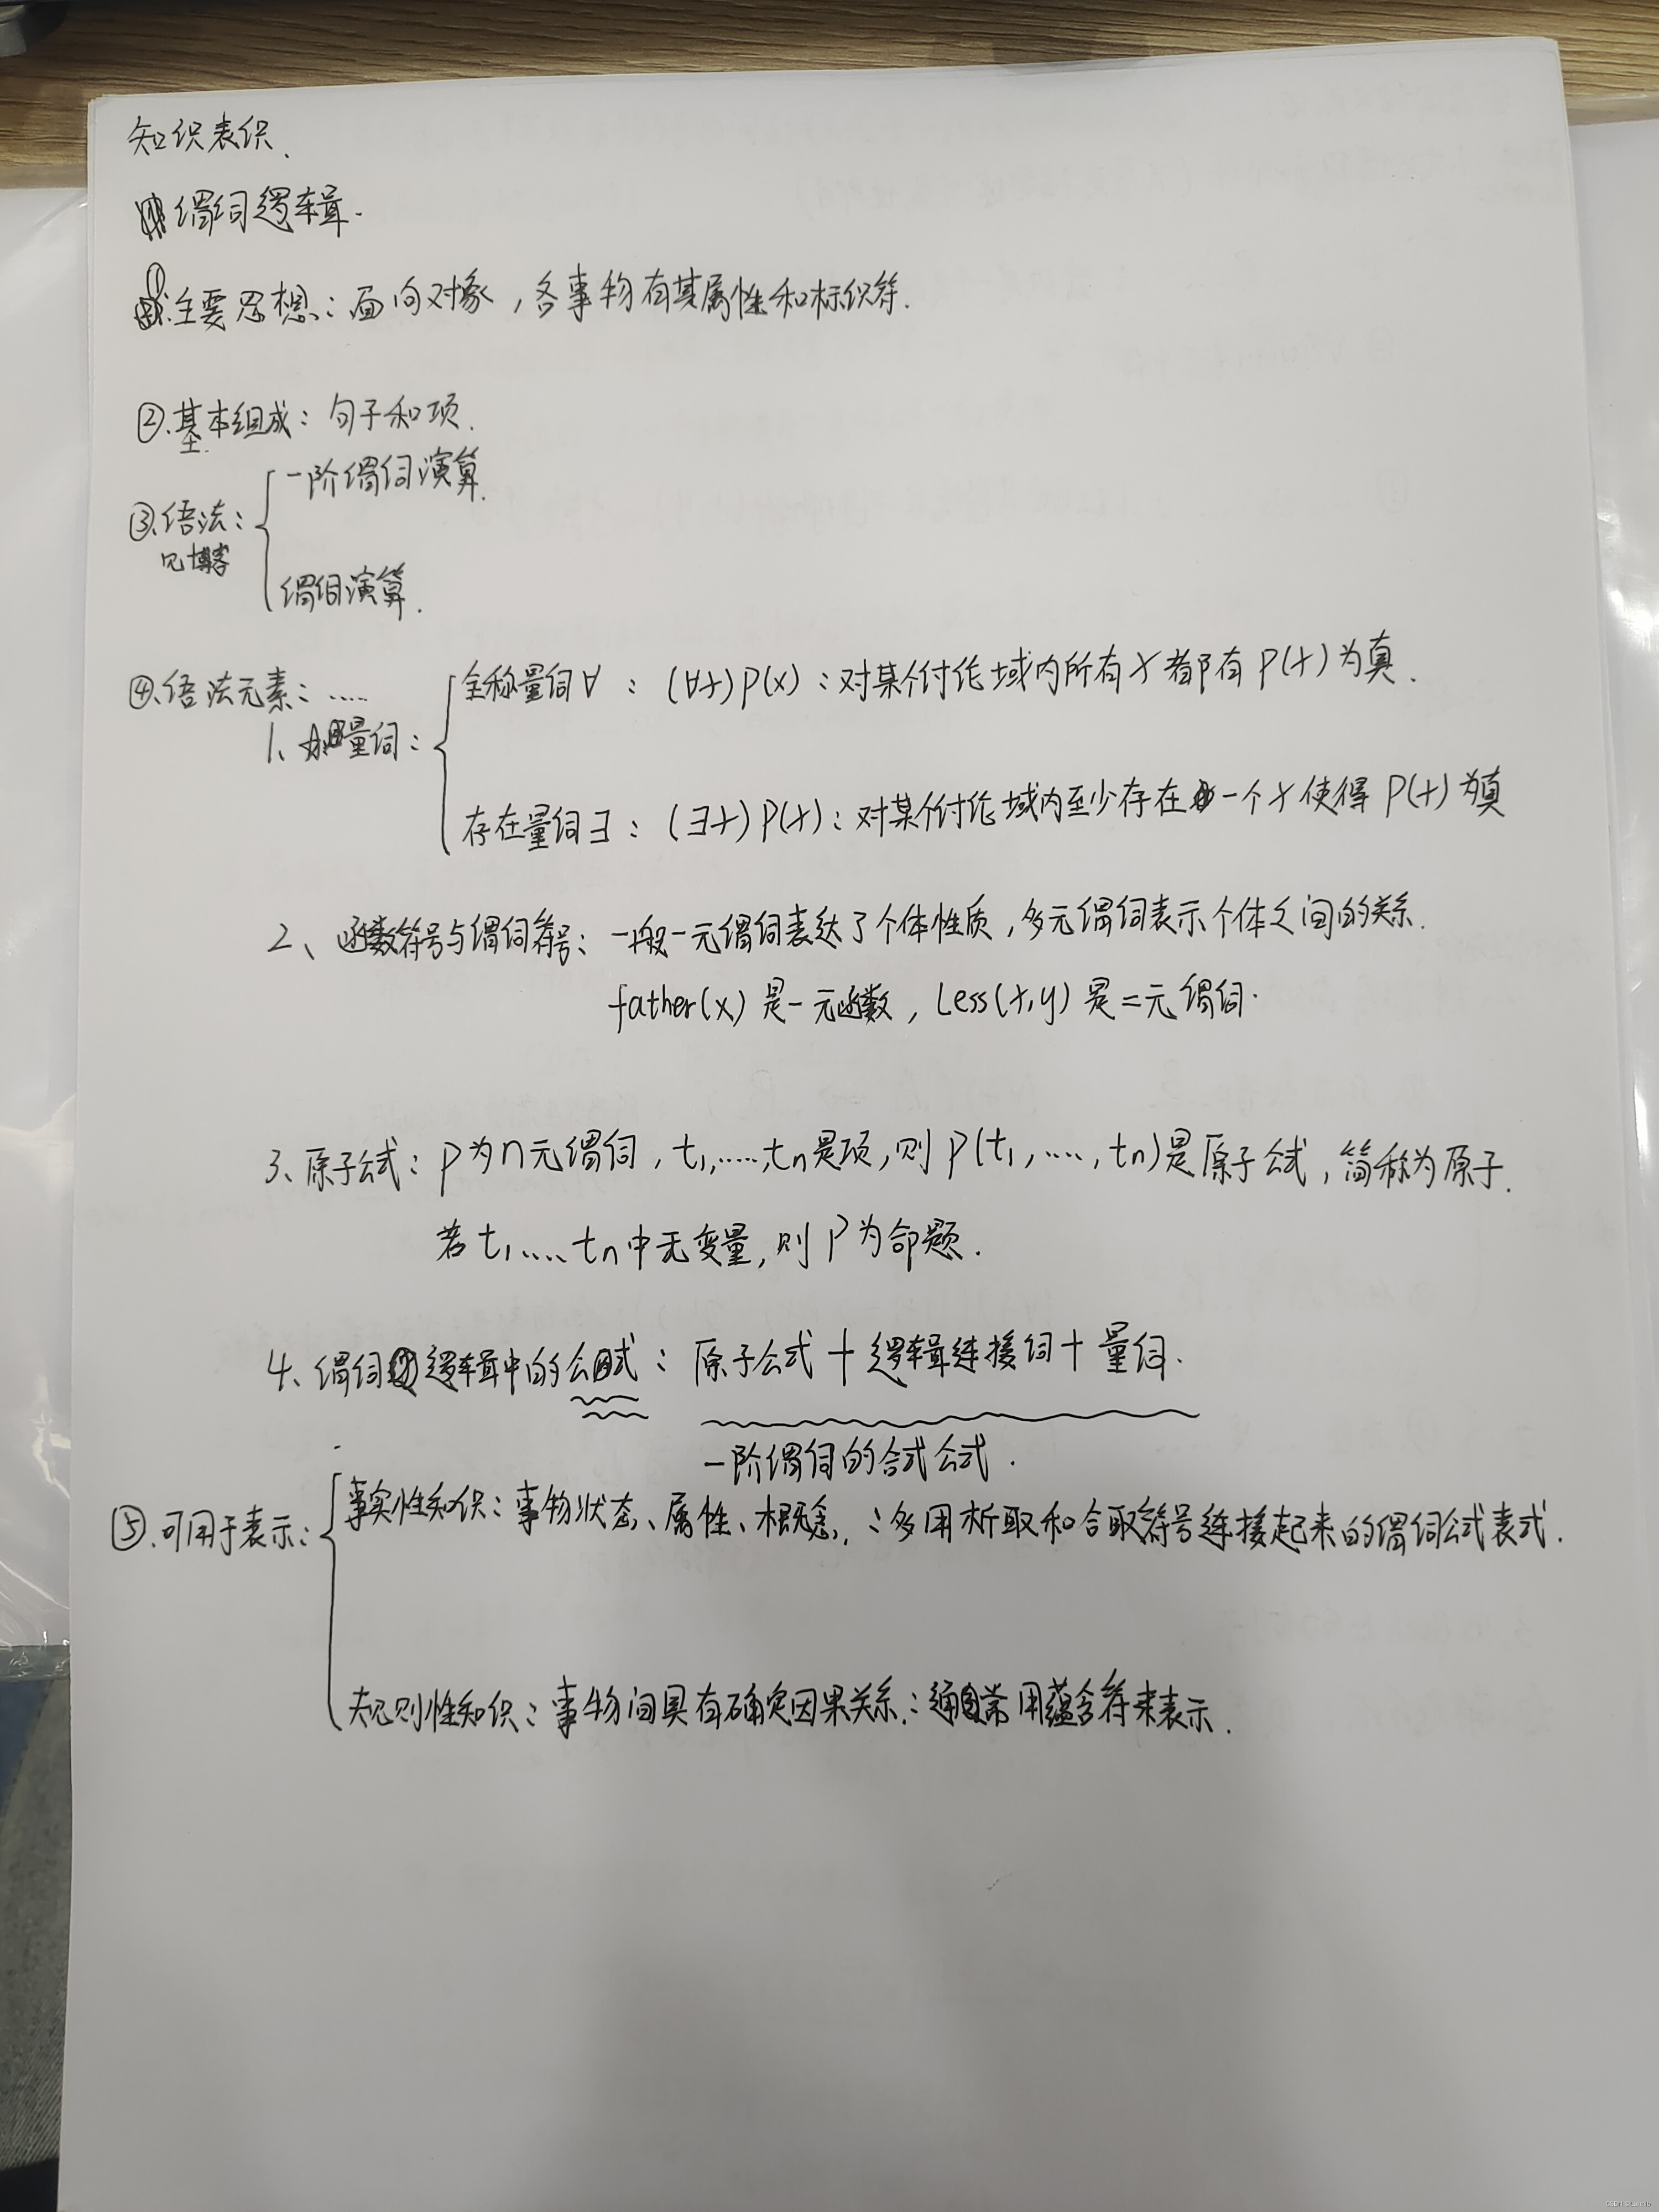 知识表识.
谓词逻辑.
主要思想：面向对象，各事物有其属性和标识符.
②.基本组成：句子和项.
③.语法：
见博客
一阶谓词演算.
谓词演算.
④.语法元素：……
1、量词：
全称量词∀：(∀x)P(x)：对某个讨论域内所有x都有P(x)为真.
存在量词∃：(∃x)P(x)：对某个讨论域内至少存在一个x使得P(x)为真
2、函数符号与谓词符号：一般一元谓词表达了个体性质，多元谓词表示个体之间的关系.
father(x)是一元函数，Less(x,y)是二元谓词.
3、原子公式：P为n元谓词，t1,……,tn是项，则P(t1,……,tn)是原子公式，简称为原子.
若t1,……tn中无变量，则P为命题.
4、谓词逻辑中的公式：原子公式+逻辑连接词+量词.
一阶谓词的合式公式.
⑤.可用于表示：
事实性知识：事物状态、属性、概念.：多用析取和合取符号连接起来的谓词公式表式.
规则性知识：事物间具有确定因果关系.：通常用蕴含符来表示.